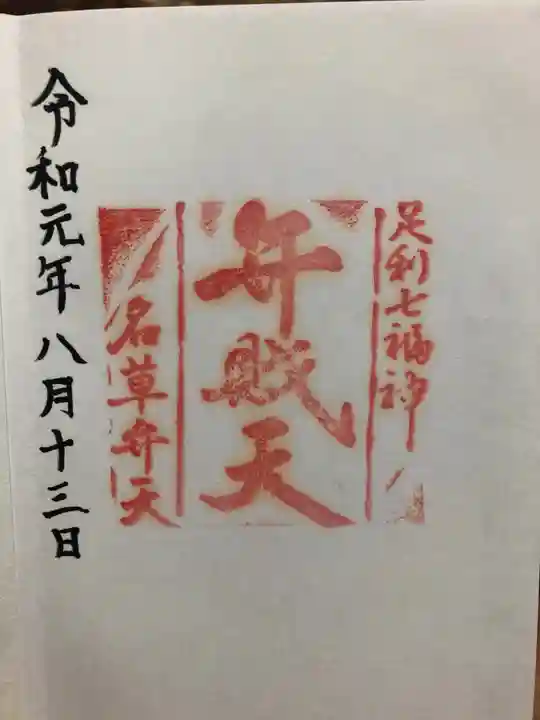 足利七福神
弁財天
名草弁天
令和元年八月十三日